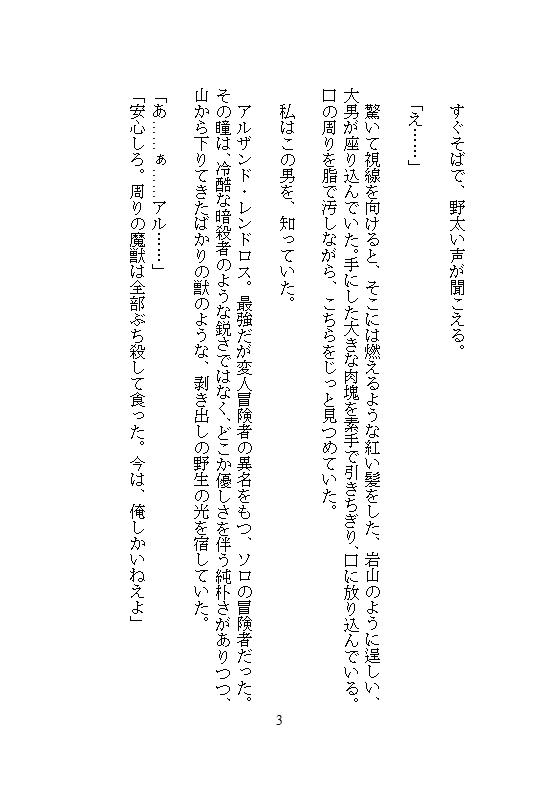 すぐそばで、野太い声が聞こえる。
「え……」
驚いて視線を向けると、そこには燃えるような紅い髪をした、岩山のように逞しい、
大男が座り込んでいた。手にした大きな肉塊を素手で引きちぎり、口に放り込んでいる。
口の周りを脂で汚しながら、こちらをじっと見つめていた。
私はこの男を、知っていた。
アルザンド・レンドロス。最強だが変人冒険者の異名をもつ、ソロの冒険者だった。
その瞳は、冷酷な暗殺者のような鋭さではなく、どこか優しさを伴う純朴さがありつつ、
山から下りてきたばかりの獣のような、剥き出しの野生の光を宿していた。
「あ……ぁ……アル……」
「安心しろ。周りの魔獣は全部ぶち殺して食った。今は、俺しかいねえよ」
3